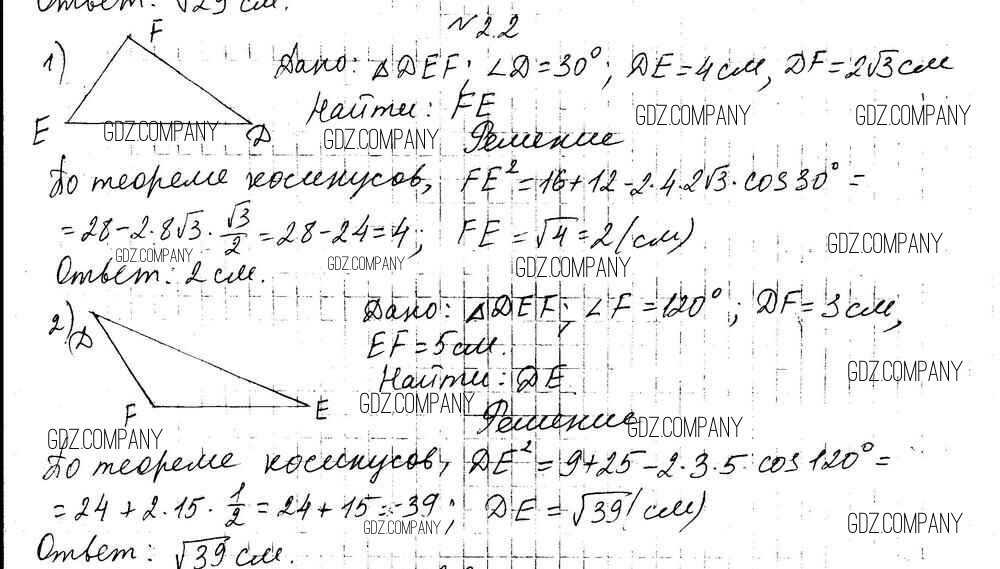 Ответ: √29 см.
№2.2
1) F E D
Дано: △DEF; ∠D=30°; DE=4см, DF=2√3см
Найти: FE
GDZ.COMPANY GDZ.COMPANY GDZ.COMPANY GDZ.COMPANY
Решение
По теореме косинусов, FE²=16+12-2·4·2√3·cos30°=
=28-2·8√3·√3/2=28-24=4; FE=√4=2(см)
GDZ.COMPANY GDZ.COMPANY GDZ.COMPANY GDZ.COMPANY
Ответ: 2см.
2) D F E
Дано: △DEF; ∠F=120°; DF=3см,
EF=5см.
Найти: DE
GDZ.COMPANY GDZ.COMPANY
Решение
GDZ.COMPANY GDZ.COMPANY
По теореме косинусов, DE²=9+25-2·3·5 cos120°=
=24+2·15·1/2=24+15=39; DE=√39(см)
GDZ.COMPANY GDZ.COMPANY
Ответ: √39 см.